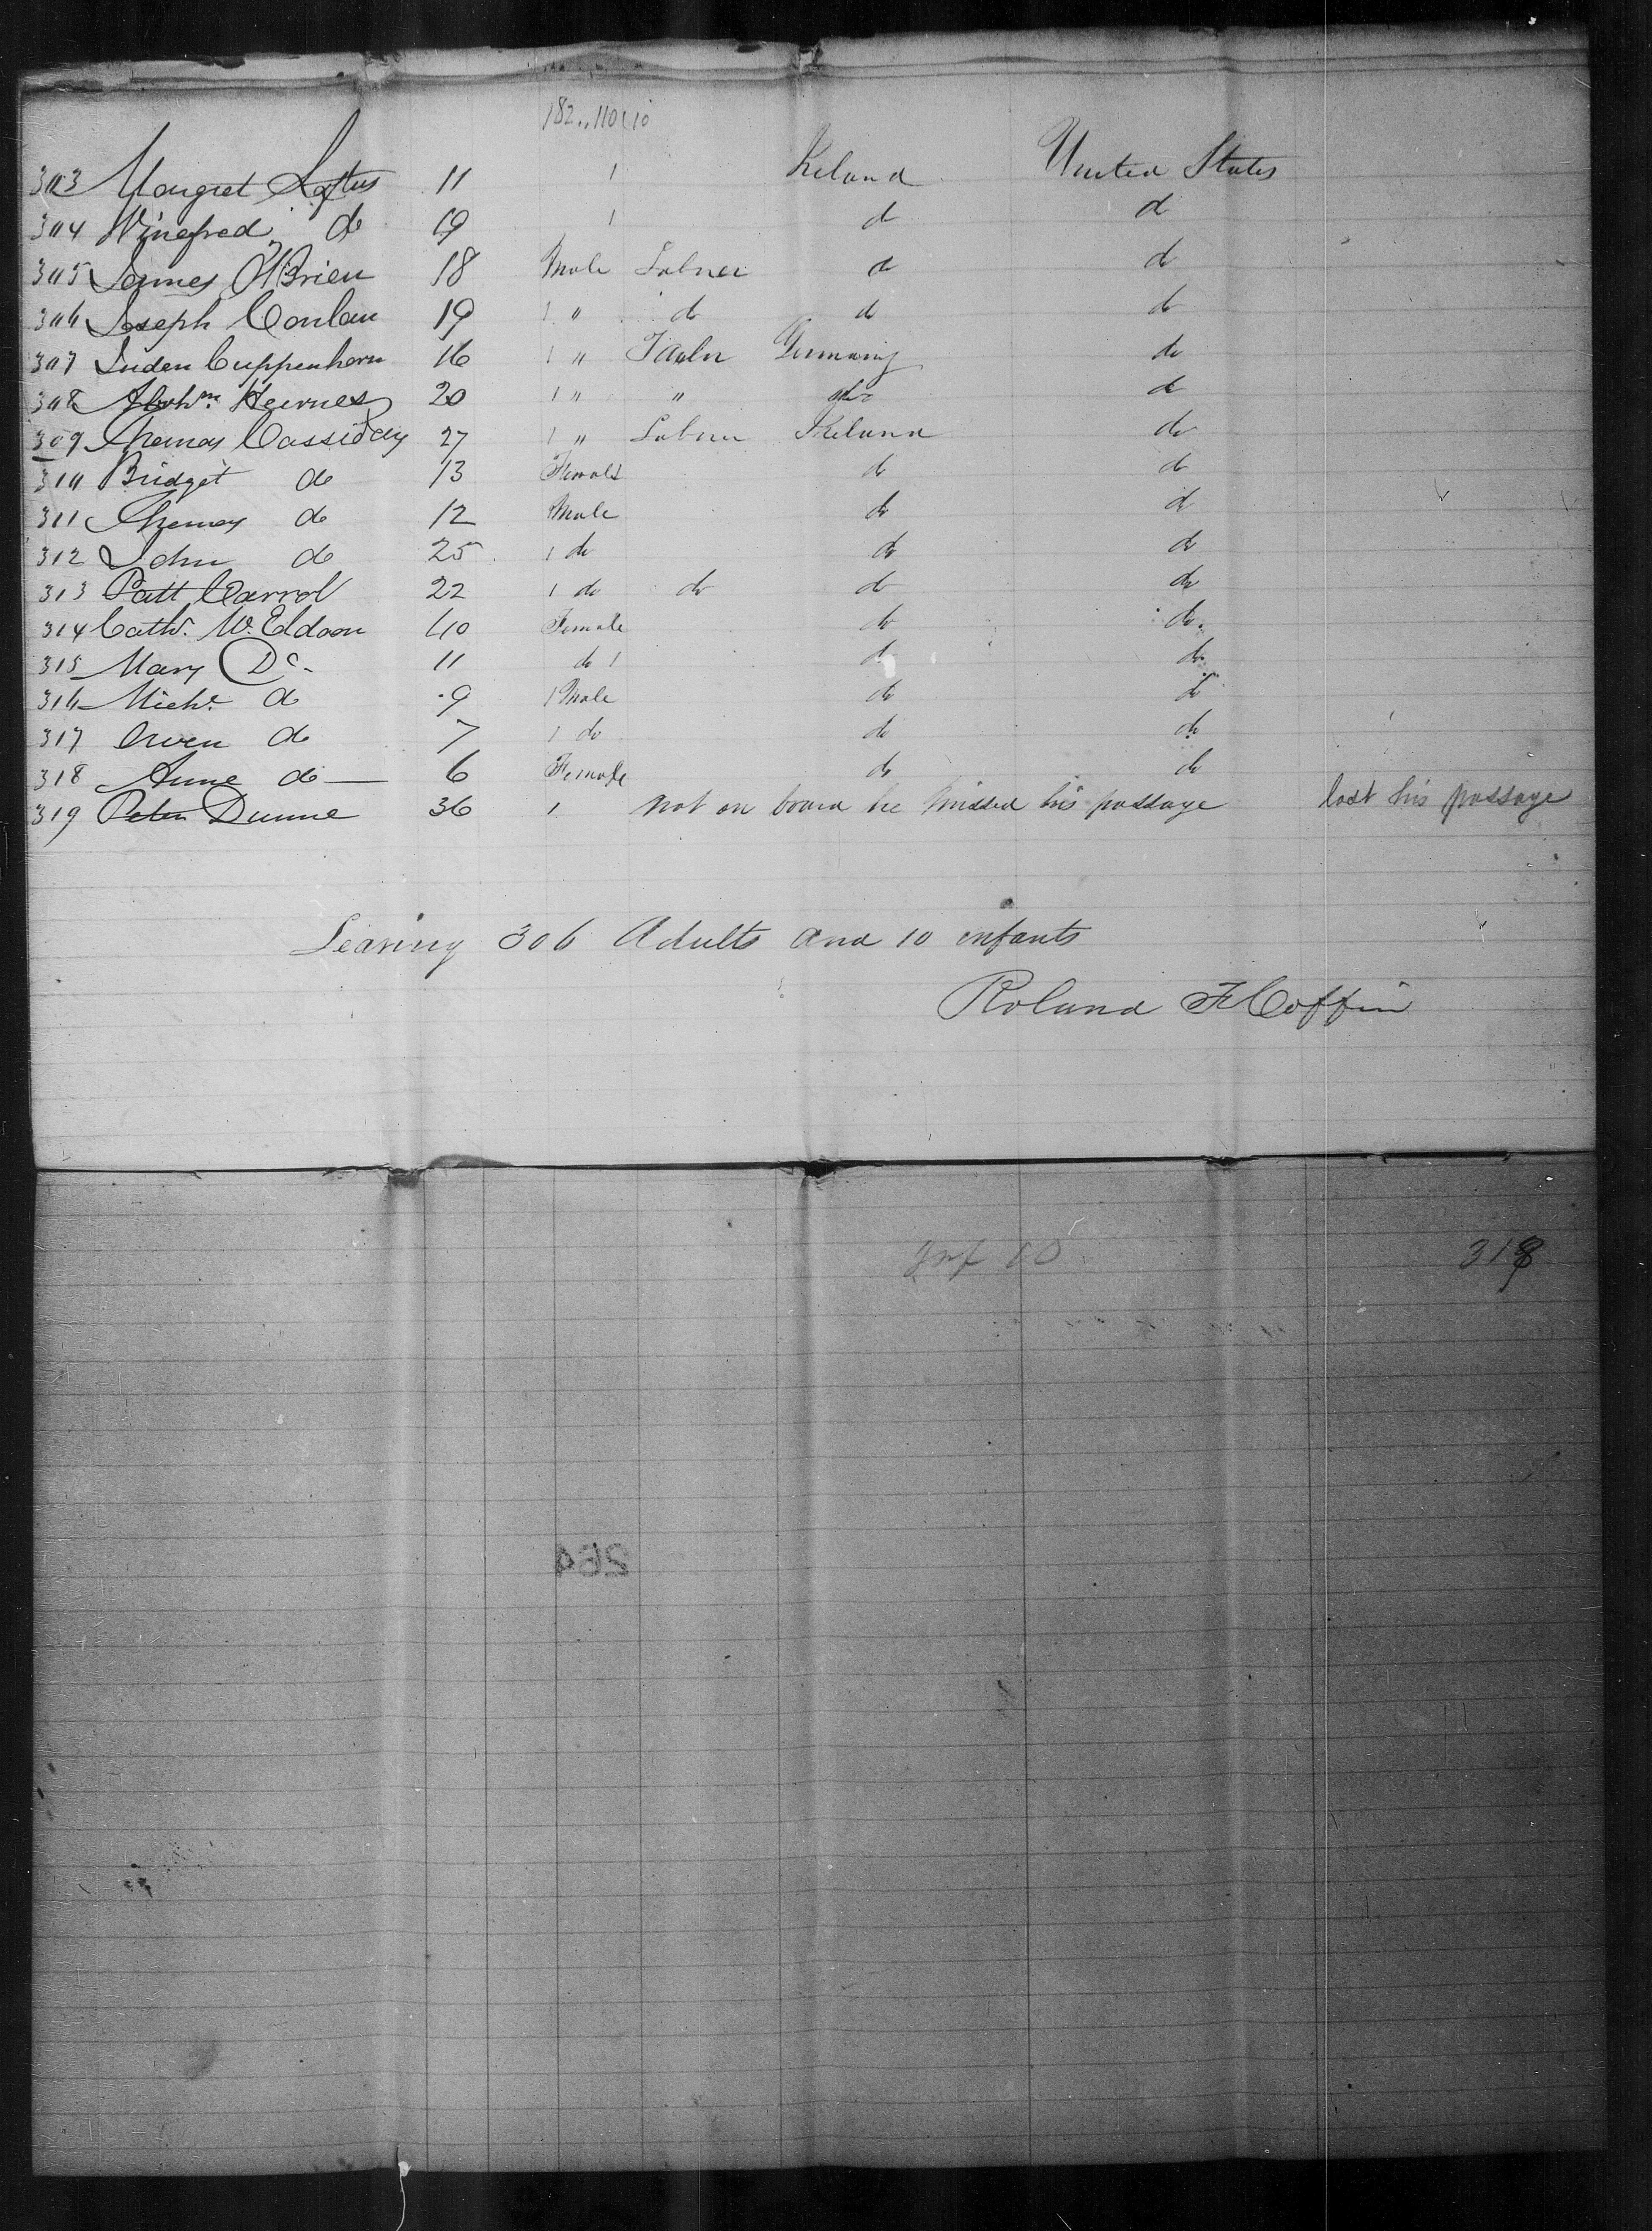 182..110(10
303 Margret Loftus 11 1 Ireland United States
304 Winefred do 19 1 do do
305 James O'Brien 18 Male Labrer do do
306 Joseph Conlan 19 1 " do do do
307 Cuppenhorn 16 1 " Germany do
308 Abrhm. Hearnes 20 1 " " do do
309 Thomas Cassiday 27 1 " Labrer Ireland do
310 Bridget do 13 Female do do
311 Thomas do 12 Male do do
312 John do 25 1 do do do
313 Patt Carrol 22 1 do do do do
314 Cath. 40 Female do do
315 Mary Do 11 do 1 do do
316 Michl do 9 1 Male do do
317 Owen do 7 1 do do do
318 Anne do 6 Female do do
319 Peter Dunne 36 1 not on board he missed his passage lost his passage
Leaving 306 Adults and 10 infants
Roland F Coffin
Inf 10 318
264